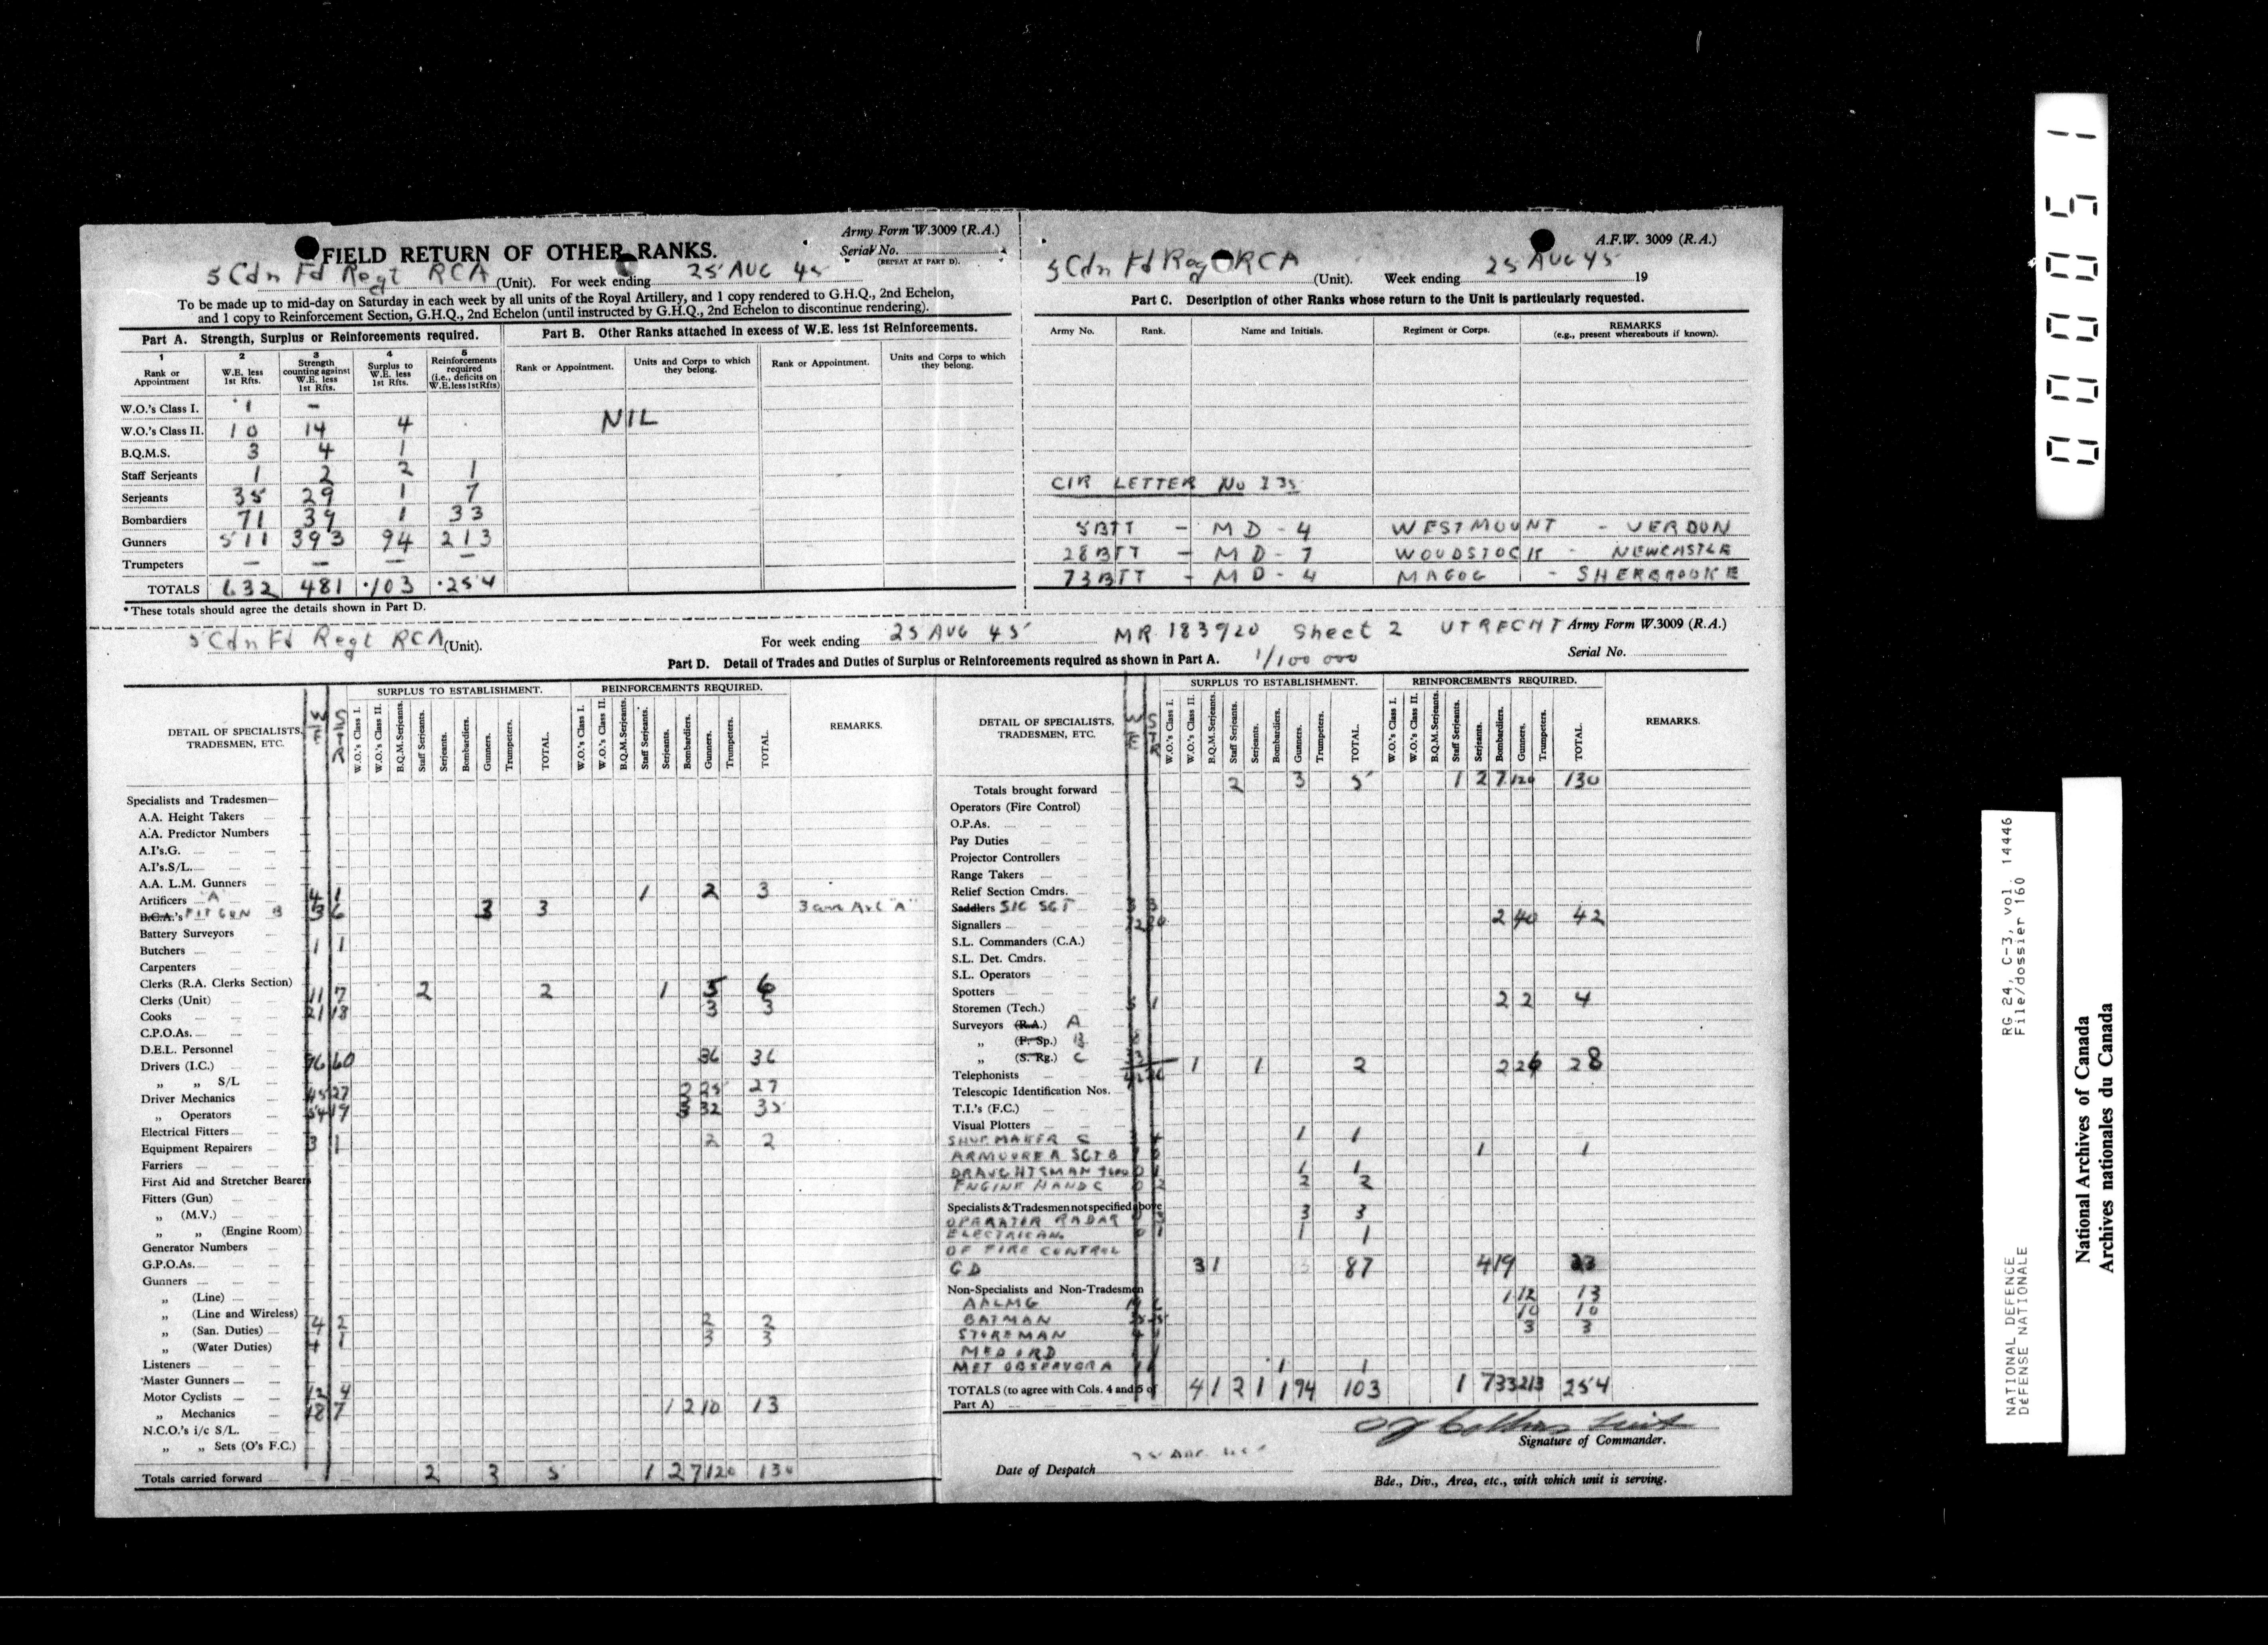 FIELD RETURN OF OTHER RANKS.
Army Form W.3009 (R.A.)
Serial No.
(REPEAT AT PART D).
5 Cdn Fd Regt RCA (Unit). For week ending 25 AUG 45
To be made up to mid-day on Saturday in each week by all units of the Royal Artillery, and 1 copy rendered to G.H.Q., 2nd Echelon,
and 1 copy to Reinforcement Section, G.H.Q., 2nd Echelon (until instructed by G.H.Q., 2nd Echelon to discontinue rendering).
Part A. Strength, Surplus or Reinforcements required.
1 2 3 4 5
Rank or Appointment
W.E. less 1st Rfts.
Strength counting against W.E. less 1st Rfts.
Surplus to W.E. less 1st Rfts.
Reinforcements required (i.e., deficits on W.E. less 1st Rfts)
W.O.'s Class I. 1 –
W.O.'s Class II. 10 14 4
B.Q.M.S. 3 4 1
Staff Serjeants 1 2 2 1
Serjeants 35 29 1 7
Bombardiers 71 39 1 33
Gunners 511 393 94 213
Trumpeters — — — —
TOTALS 632 481 103 254
*These totals should agree the details shown in Part D.
Part B. Other Ranks attached in excess of W.E. less 1st Reinforcements.
Rank or Appointment. Units and Corps to which they belong. Rank or Appointment. Units and Corps to which they belong.
NIL
A.F.W. 3009 (R.A.)
5 Cdn Fd Reg RCA (Unit). Week ending 25 AUG 45 19
Part C. Description of other Ranks whose return to the Unit is particularly requested.
Army No. Rank. Name and Initials. Regiment or Corps. REMARKS
(e.g., present whereabouts if known).
CIR LETTER No 235
5 BTT – MD-4 WESTMOUNT – VERDUN
28 BTT – MD-7 WOODSTOCK – NEWCASTLE
73 BTT – MD-4 MAGOG – SHERBROOKE
5 Cdn Fd Regt RCA (Unit). For week ending 25 AUG 45 MR 183920 Sheet 2 UTRECHT Army Form W.3009 (R.A.)
Part D. Detail of Trades and Duties of Surplus or Reinforcements required as shown in Part A. 1/100 000 Serial No.
DETAIL OF SPECIALISTS, TRADESMEN, ETC.
WE STR
SURPLUS TO ESTABLISHMENT.
W.O.'s Class I. W.O.'s Class II. B.Q.M.Serjeants. Staff Serjeants. Serjeants. Bombardiers. Gunners. Trumpeters. TOTAL.
REINFORCEMENTS REQUIRED.
W.O.'s Class I. W.O.'s Class II. B.Q.M.Serjeants. Staff Serjeants. Serjeants. Bombardiers. Gunners. Trumpeters. TOTAL.
REMARKS.
Specialists and Tradesmen—
A.A. Height Takers
A.A. Predictor Numbers
A.I's.G.
A.I's.S/L.
A.A. L.M. Gunners
Artificers "A" 4 1 1 2 3
B.C.A.'s FIT GUN B 3 6 3 3
Battery Surveyors
Butchers 1 1
Carpenters
Clerks (R.A. Clerks Section)
Clerks (Unit) 11 7 2 2 1 5 6
Cooks 21 18 3 3
C.P.O.As.
D.E.L. Personnel
Drivers (I.C.) 96 60 36 36
„ „ S/L
Driver Mechanics 45 27 2 25 27
„ Operators 54 19 3 32 35
Electrical Fitters
Equipment Repairers 3 1 2 2
Farriers
First Aid and Stretcher Bearers
Fitters (Gun)
„ (M.V.)
„ „ (Engine Room)
Generator Numbers
G.P.O.As.
Gunners
„ (Line)
„ (Line and Wireless)
„ (San. Duties) 4 2 2 2
„ (Water Duties) 4 1 3 3
Listeners
Master Gunners
Motor Cyclists 12 4
„ Mechanics 18 7 1 2 10 13
N.C.O.'s i/c S/L.
„ „ Sets (O's F.C.)
Totals carried forward 2 3 5 1 2 7 120 130
DETAIL OF SPECIALISTS, TRADESMEN, ETC.
WE STR
SURPLUS TO ESTABLISHMENT.
W.O.'s Class I. W.O.'s Class II. B.Q.M.Serjeants. Staff Serjeants. Serjeants. Bombardiers. Gunners. Trumpeters. TOTAL.
REINFORCEMENTS REQUIRED.
W.O.'s Class I. W.O.'s Class II. B.Q.M.Serjeants. Staff Serjeants. Serjeants. Bombardiers. Gunners. Trumpeters. TOTAL.
REMARKS.
Totals brought forward 2 3 5 1 2 7 120 130
Operators (Fire Control)
O.P.As.
Pay Duties
Projector Controllers
Range Takers
Relief Section Cmdrs.
Saddlers SIG SGT 3 3
Signallers 2 40 42
S.L. Commanders (C.A.)
S.L. Det. Cmdrs.
S.L. Operators
Spotters
Storemen (Tech.) 5 1 2 2 4
Surveyors (R.A.) A
„ (F. Sp.) B
„ (S. Rg.) C
Telephonists 1 1 2 2 26 28
Telescopic Identification Nos.
T.I.'s (F.C.)
Visual Plotters
SHOEMAKER C 1 1
ARMOURER A SGT B 1 1
DRAUGHTSMAN 0 1 1 1
ENGINE HAND C 0 2 2 2
Specialists & Tradesmen not specified above
OPERATOR RADAR 3 3 3
ELECTRICAN 0 1 1 1
OF FIRE CONTROL
GD 3 1 87 4 19 23
Non-Specialists and Non-Tradesmen
AALMG 1 12 13
BATMAN 10 10
STOREMAN 4 1 3 3
MED ORD
MET OBSERVOR A 1 1
TOTALS (to agree with Cols. 4 and 5 of Part A) 4 1 2 1 1 94 103 1 7 33 213 254
Lieut
Signature of Commander.
Date of Despatch
Bde., Div., Area, etc., with which unit is serving.
000051
NATIONAL DEFENCE RG 24, C-3, vol. 14446
DÉFENSE NATIONALE File/dossier 160
National Archives of Canada
Archives nationales du Canada